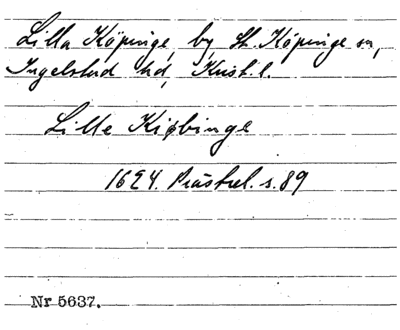 Lilla Köpinge, by, St. Köpinge sn,
Ingelstad hd, Krist. l.
Lille Kiøbinge
1624. Prästrel. s. 89
Nr 5637.